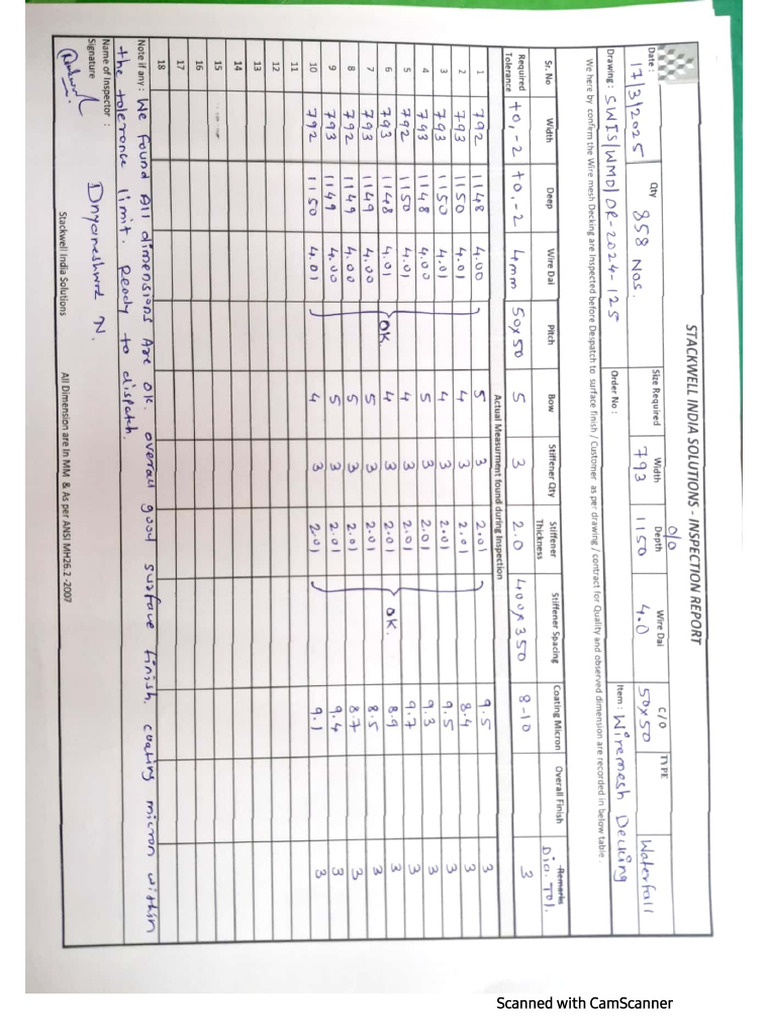 STACKWELL INDIA SOLUTIONS - INSPECTION REPORT
Date : 17/3/2025 Qty 858 Nos. Size Required Width 793 o/o Depth 1150 Wire Dai 4.0 C/O 50x50 TYPE Waterfall
Drawing : SWIS/WMD/DR-2024-125 Order No : Item : Wiremesh Decking
We here by confirm the Wire mesh Decking are Inspected before Despatch to surface finish / Customer as per drawing / contract for Quality and observed dimension are recorded in below table .
Sr. No Width Deep Wire Dai Pitch Bow Stiffener Qty Stiffener Thickness Stiffener Spacing Coating Micron Overall Finish Remarks Dia. Tol.
Required Tolerance +0,-2 +0,-2 4mm 50x50 5 3 2.0 400x350 8-10 3
Actual Measurment found during Inspection
1 792 1148 4.00 5 3 2.01 9.5 3
2 793 1150 4.01 4 3 2.01 8.4 3
3 793 1150 4.01 4 3 2.01 9.5 3
4 793 1148 4.00 5 3 2.01 9.3 3
5 792 1150 4.01 4 3 2.01 9.7 3
6 793 1148 4.01 OK. 4 3 2.01 OK. 8.9 3
7 793 1149 4.00 5 3 2.01 8.5 3
8 792 1149 4.00 5 3 2.01 8.7 3
9 793 1149 4.00 5 3 2.01 9.4 3
10 792 1150 4.01 4 3 2.01 9.1 3
11
12
13
14
15
16
17
18
Note if any : We found All dimensions Are OK. overall good surface finish. coating micron within
the tolerance limit. Ready to dispatch.
Name of Inspector : Dnyaneshwar N.
Signature
Stackwell India Solutions All Dimension are In MM & As per ANSI MH26.2 -2007
Scanned with CamScanner